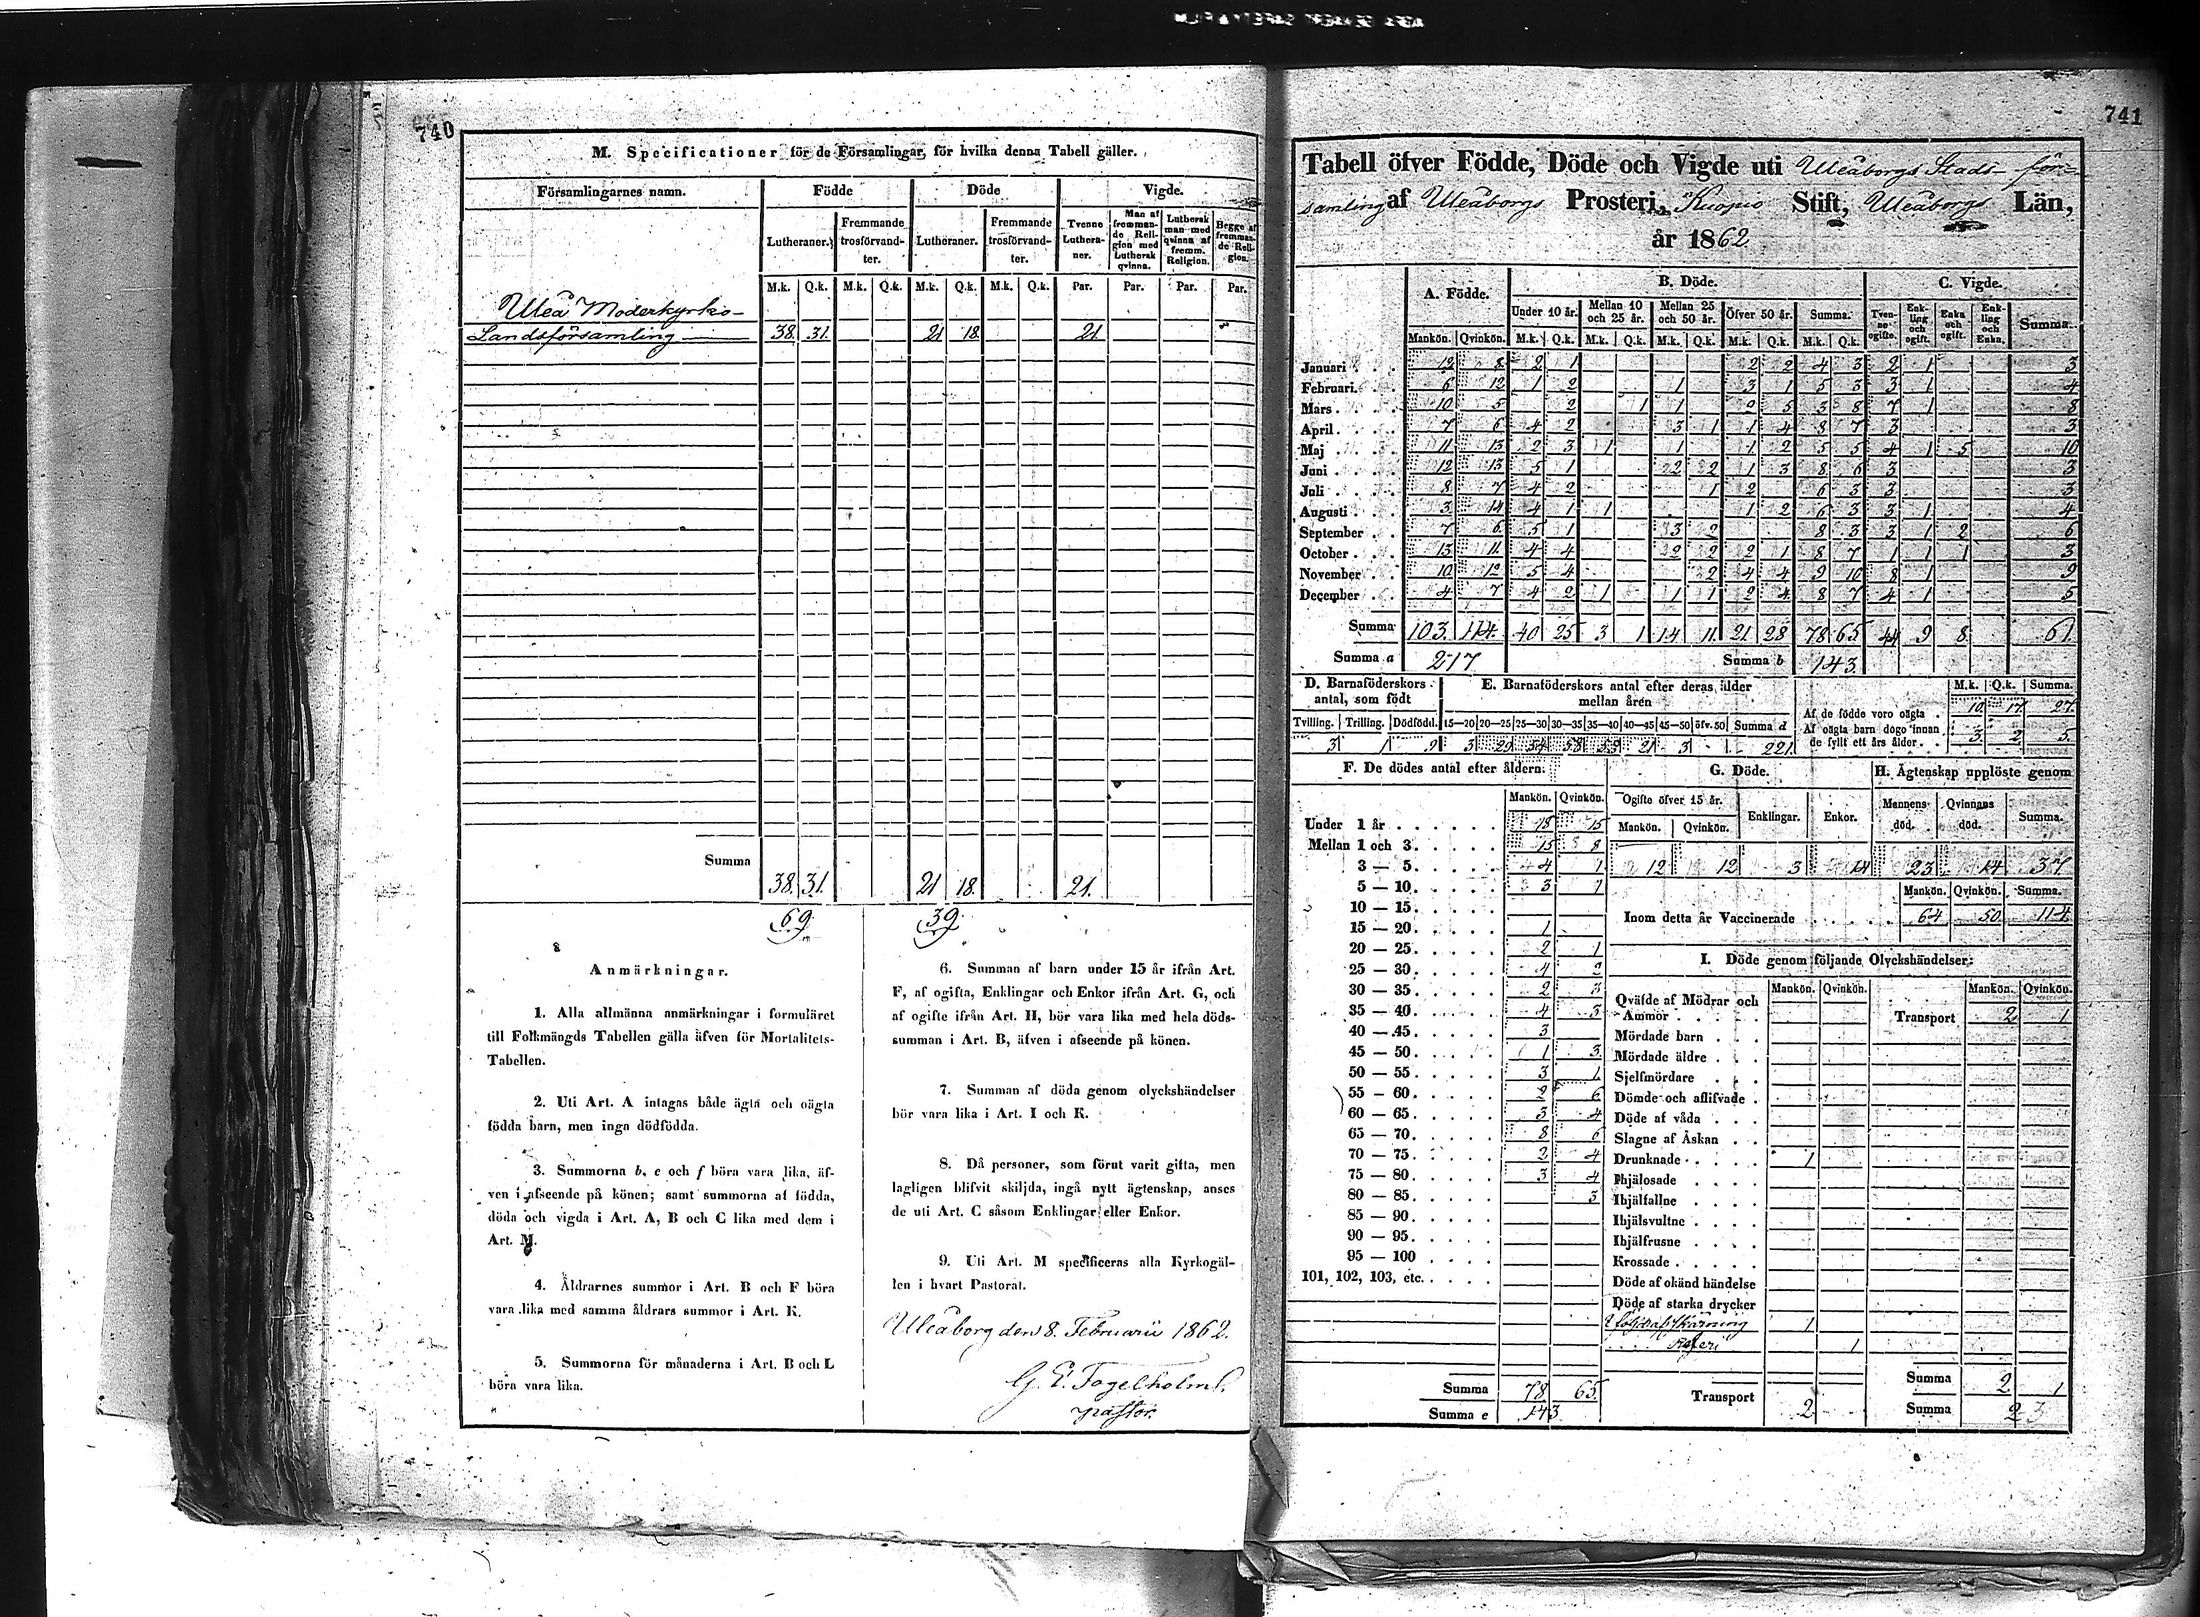 740
M. Specificationer för de Församlingar, för hvilka denna Tabell gäller.
Församlingarnes namn. Födde Döde Vigde.
Lutheraner. Fremmande trosförvandter. Lutheraner. Fremmande trosförvandter. Tvenne Lutheraner. Man af fremmande Religion med Luthersk qvinna. Luthersk man med qvinna af fremm. Religion. Begge af fremmande Religion.
M.k. Q.k. M.k. Q.k. M.k. Q.k. M.k. Q.k. Par. Par. Par. Par.
Uleå Moderkyrko-
Landsförsamling 38. 31. 21 18. 21.
Summa 38. 31. 21 18. 21.
69. 39.
Anmärkningar.
1. Alla allmänna anmärkningar i formuläret
till Folkmängds Tabellen gälla äfven för Mortalitets-
Tabellen.
2. Uti Art. A intagas både ägta och oägta
födda barn, men inga dödfödda.
3. Summorna b, e och f böra vara lika, äf-
ven i afseende på könen; samt summorna af födda,
döda och vigda i Art. A, B och C lika med dem i
Art. M.
4. Åldrarnes summor i Art. B och F böra
vara lika med samma åldrars summor i Art. K.
5. Summorna för månaderna i Art. B och L
böra vara lika.
6. Summan af barn under 15 år ifrån Art.
F, af ogifta, Enklingar och Enkor ifrån Art. G, och
af ogifte ifrån Art. H, bör vara lika med hela döds-
summan i Art. B, äfven i afseende på könen.
7. Summan af döda genom olyckshändelser
bör vara lika i Art. I och K.
8. Då personer, som förut varit gifta, men
lagligen blifvit skiljda, ingå nytt ägtenskap, anses
de uti Art. C såsom Enklingar eller Enkor.
9. Uti Art. M specificeras alla Kyrkogäl-
len i hvart Pastorat.
Uleåborg den 8. Februarii 1862.
G. E. Fogelholm
pastor.
741
Tabell öfver Födde, Döde och Vigde uti Uleåborgs Stads- för-
samling af Uleåborgs Prosteri, Kuopio Stift, Uleåborgs Län,
år 1862
A. Födde. B. Döde. C. Vigde.
Under 10 år. Mellan 10 och 25 år. Mellan 25 och 50 år. Öfver 50 år. Summa. Tvenne ogifte. Enkling och ogift. Enka och ogift. Enkling och Enka. Summa.
Mankön. Qvinkön. M.k. Q.k. M.k. Q.k. M.k. Q.k. M.k. Q.k. M.k. Q.k.
Januari 12 8 2 1 2 2 4 3 2 1 3
Februari. 6 12 1 2 1 3 1 5 3 3 1 4
Mars 10 5 2 1 1 2 5 3 8 7 1 8
April 7 6 4 2 3 1 1 4 8 7 3 3
Maj 11 13 2 3 1 1 1 2 5 5 4 1 5 10
Juni 12 13 5 1 2 2 1 3 8 6 3 3
Juli 8 7 4 2 1 2 6 3 3 3
Augusti 3 14 4 1 1 1 2 6 3 3 1 4
September 7 6 5 1 3 2 8 3 3 1 2 6
October 13 11 4 4 2 2 2 1 8 7 1 1 1 3
November 10 12 5 4 2 4 4 9 10 8 1 9
December 4 7 4 2 1 1 1 2 4 8 7 4 1 5
Summa 103. 114. 40 25 3 1 14 11 21 28 78 65 44 9 8 61.
Summa a 217 Summa b 143.
D. Barnaföderskors antal, som födt
E. Barnaföderskors antal efter deras ålder mellan åren
M.k. Q.k. Summa.
Tvilling. Trilling. Dödfödd. 15—20 20—25 25—30 30—35 35—40 40—45 45—50 öfv. 50 Summa d
3 1 9 3 29 54 58 53 21 3 221.
Af de födde voro oägta 10 17. 27.
Af oägta barn dogo innan
de fyllt ett års ålder 3 2 5.
F. De dödes antal efter åldern.
Mankön. Qvinkön.
Under 1 år 18 15
Mellan 1 och 3 15 8
3 — 5 4 1
5 — 10 3 1
10 — 15
15 — 20 1
20 — 25 2 1
25 — 30 4 2
30 — 35 2 3
35 — 40 4 3
40 — 45 3
45 — 50 1 3
50 — 55 3 1
55 — 60 2 6
60 — 65 3 4
65 — 70 8 6
70 — 75 2 4
75 — 80 3 4
80 — 85 3
85 — 90
90 — 95
95 — 100
101, 102, 103, etc.
Summa 78 65.
Summa e 143
G. Döde. H. Ägtenskap upplöste genom
Ogifte öfver 15 år. Enklingar. Enkor. Mannens död. Qvinnans död. Summa.
Mankön. Qvinkön.
12 12 3 14 23 14 37
Mankön. Qvinkön. Summa.
Inom detta år Vaccinerade 64 50 114.
I. Döde genom följande Olyckshändelser:
Mankön. Qvinkön. Mankön. Qvinkön.
Qväfde af Mödrar och
Ammor Transport 2 1
Mördade barn
Mördade äldre
Sjelfmördare
Dömde och aflifvade
Döde af våda
Slagne af Åskan
Drunknade 1
Ihjälosade
Ihjälfallne
Ihjälsvultne
Ihjälfrusne
Krossade
Döde af okänd händelse
Döde af starka drycker
1
1
Summa 2 1
Transport 2
Summa 3